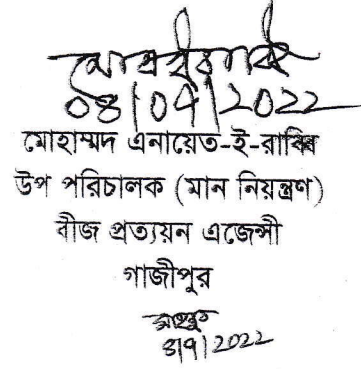 ০৪/০৭/২০২২
মোহাম্মদ এনায়েত-ই-রাব্বি
উপ পরিচালক (মান নিয়ন্ত্রণ)
বীজ প্রত্যয়ন এজেন্সী
গাজীপুর
৪/৭/২০২২